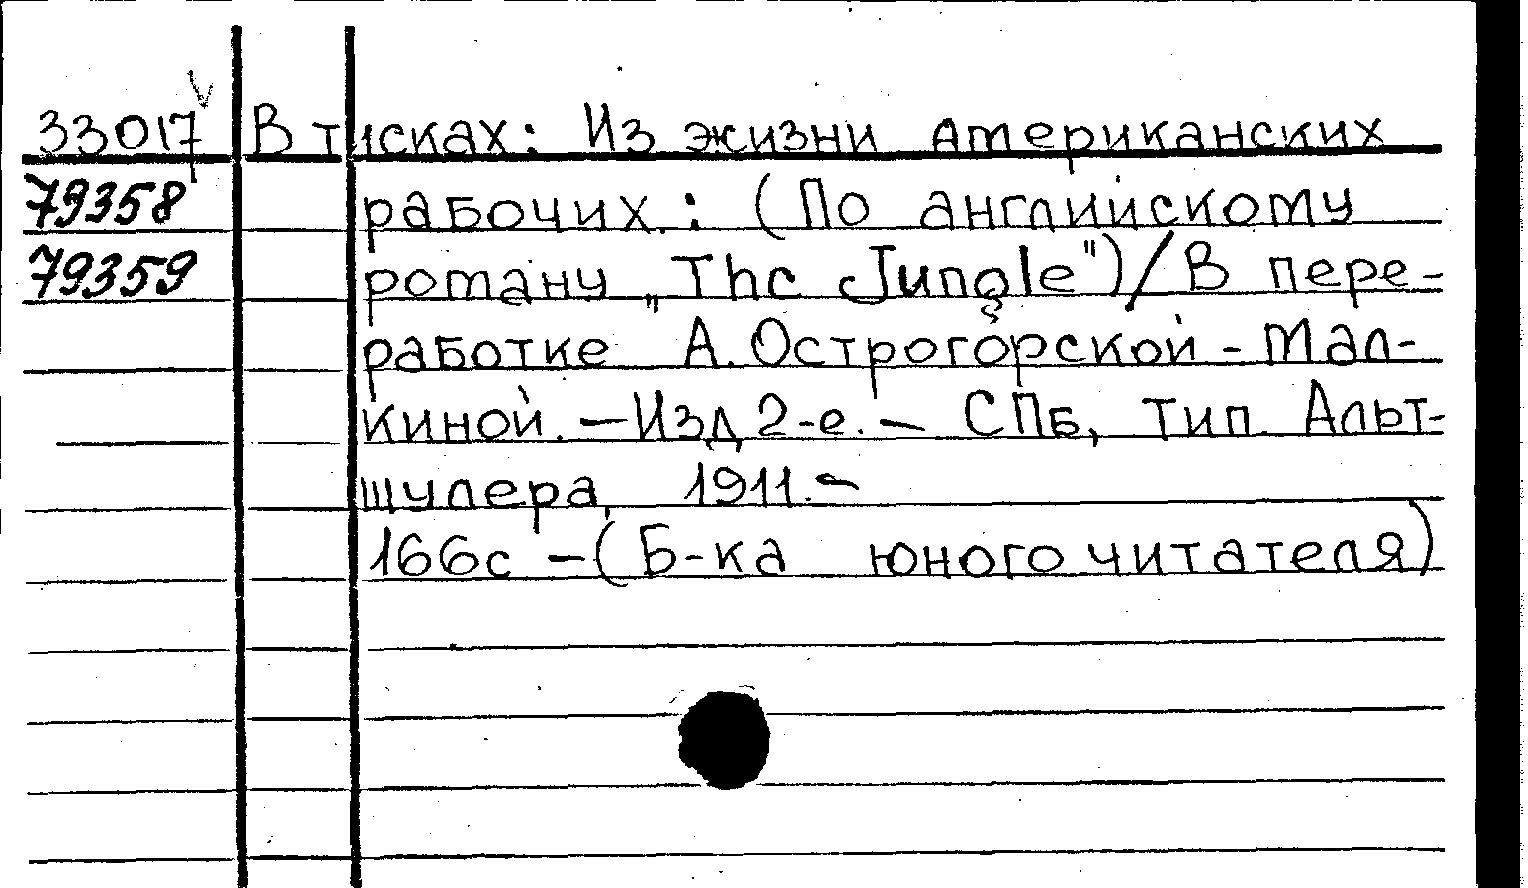 33017 В тисках: Из жизни американских
79358 рабочих.: (По английскому
79359 роману „The Jungle")/В пере-
работке А. Острогорской-Мал-
киной. — Изд 2-е. — СПб, тип. Альт-
шулера, 1911. —
166с — (Б-ка юного читателя)